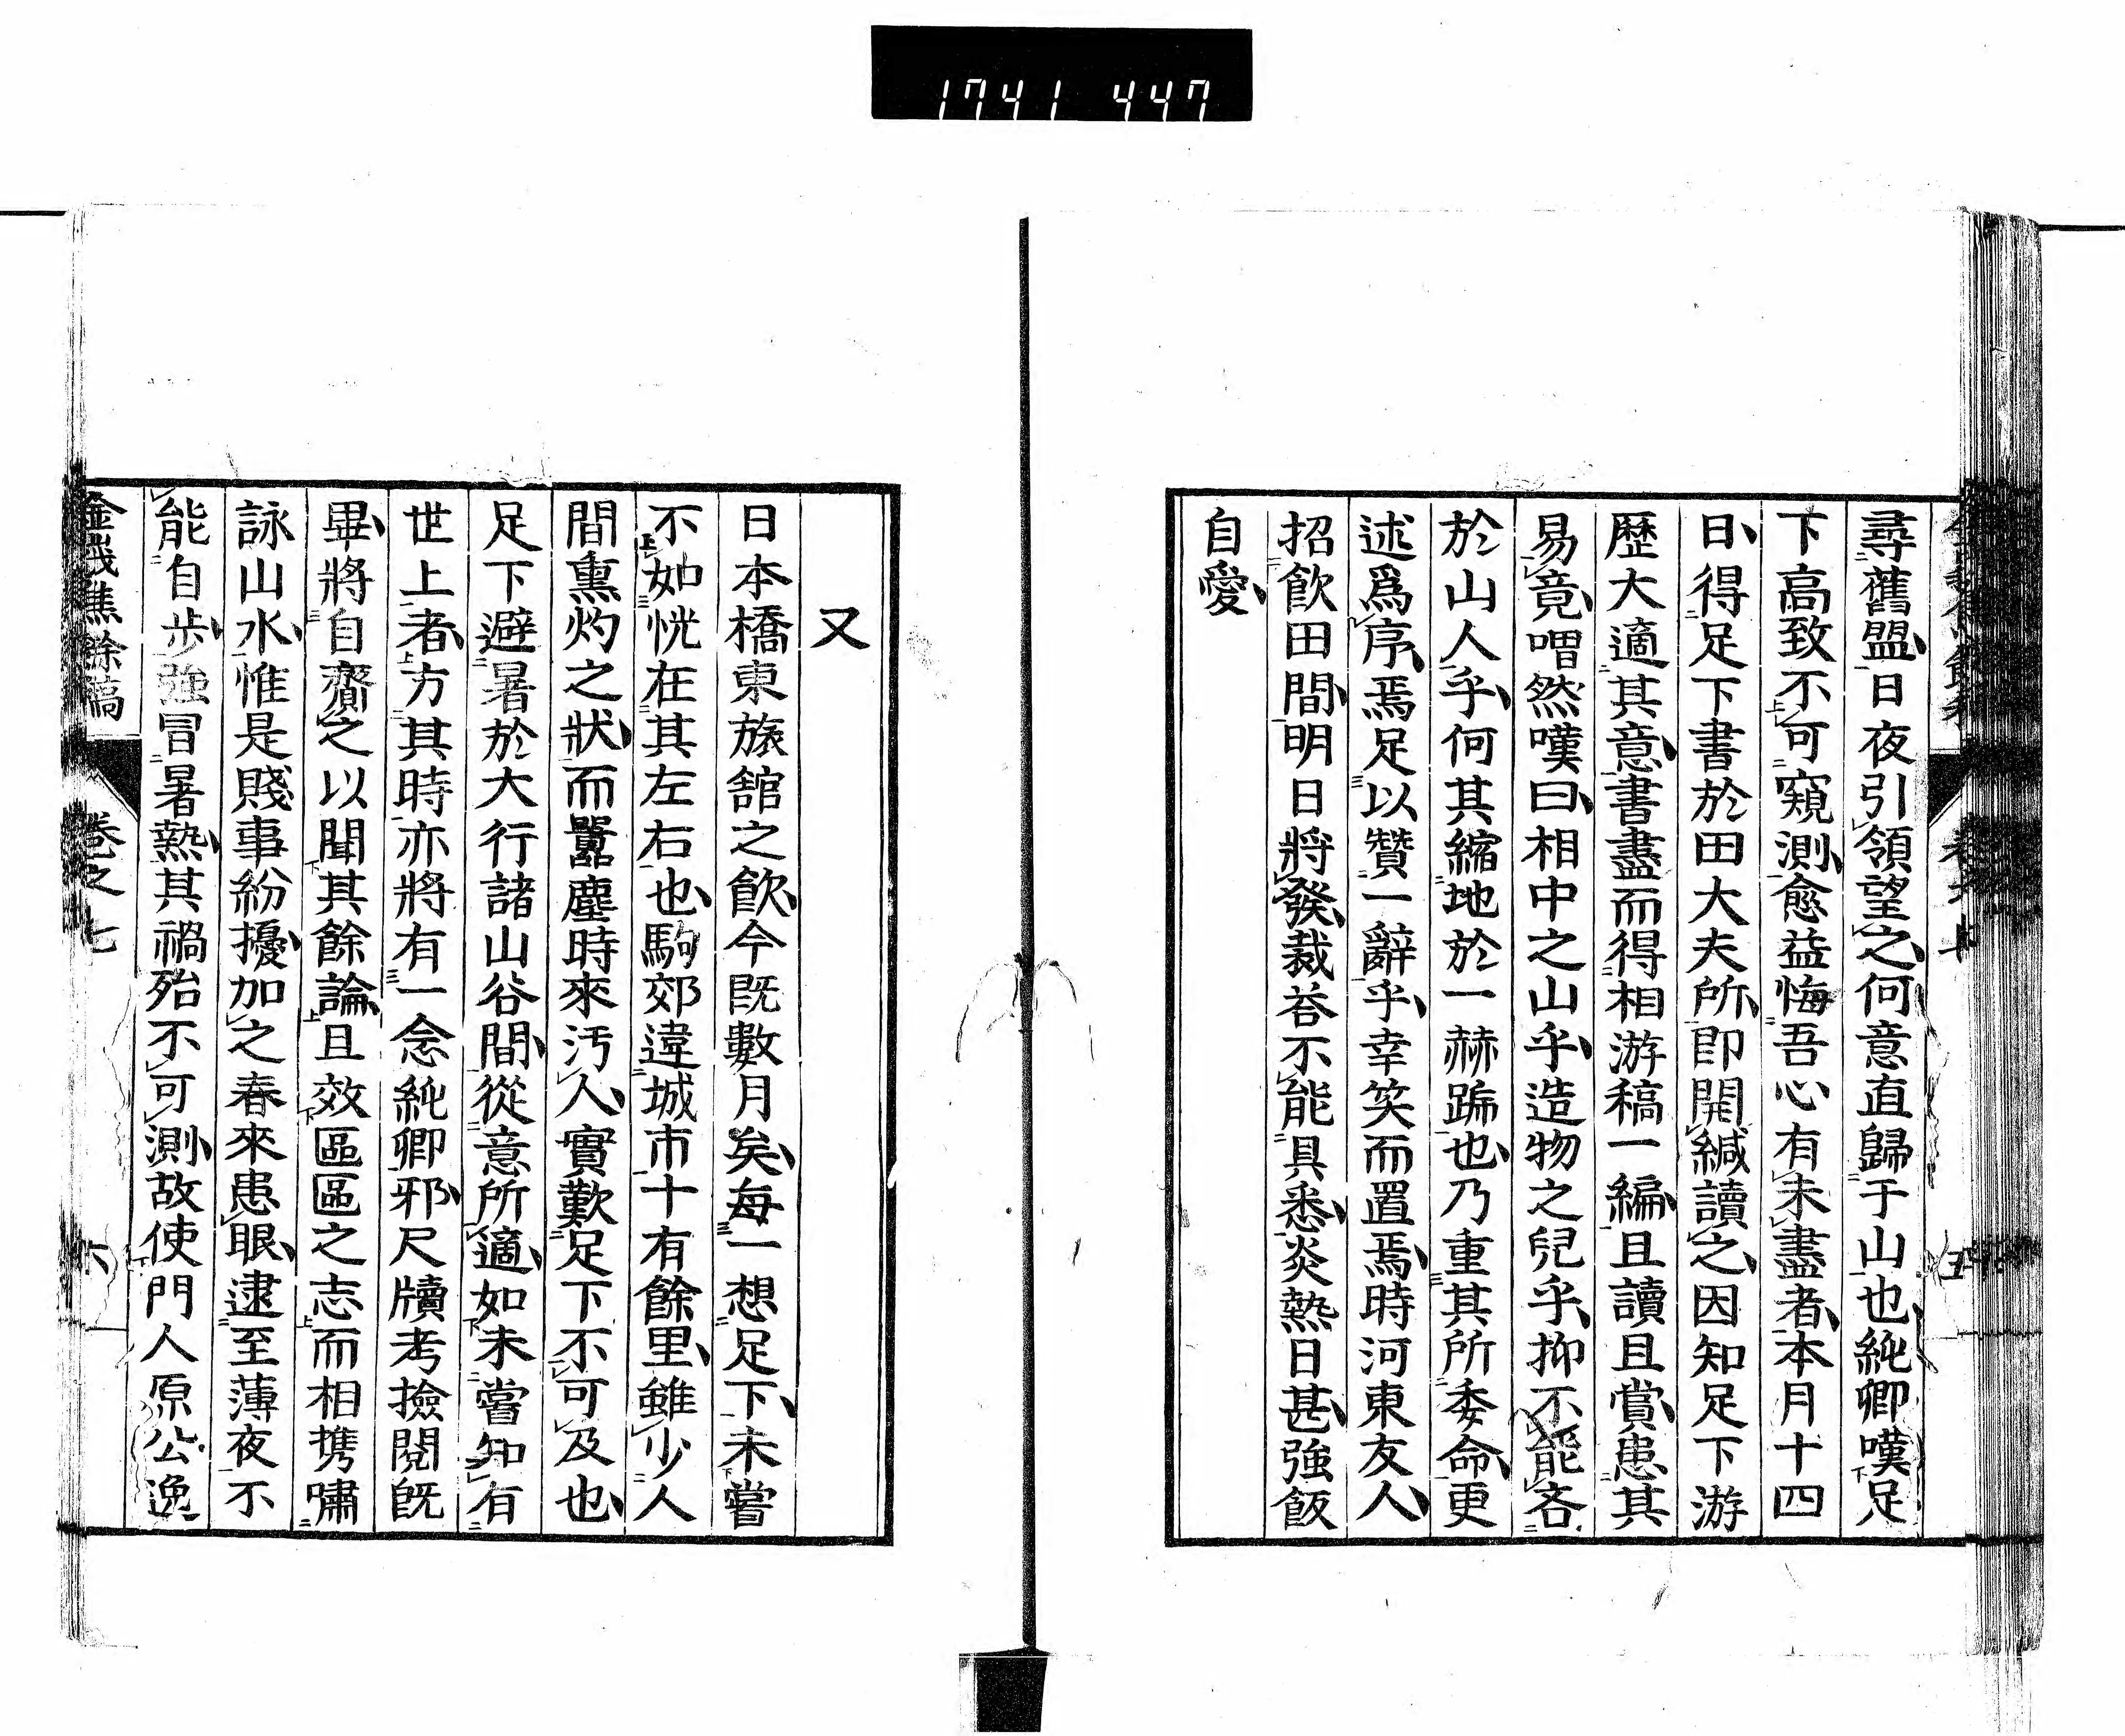 1741 447
尋舊盟日夜引領望之何意直歸于山也純卿嘆足
下高致不可窺測愈益悔吾心有未盡者本月十四
日得足下書於田大夫所即開緘讀之因知足下游
歷大適其意書盡而得相游稿一編且讀且賞患其
易竟喟然嘆曰相中之山乎造物之兒乎抑不能吝
於山人乎何其縮地於一赫蹏也乃重其所委命更
述爲序焉足以贊一辭乎幸笑而置焉時河東友人
招飲田間明日將發裁荅不能具悉炎熱日甚強飯
自愛
又
日本橋東旅舘之飲今既數月矣每一想足下未嘗
不如恍在其左右也駒郊違城市十有餘里雖少人
間熏灼之狀而囂塵時來汚人實歎足下不可及也
足下避暑於大行諸山谷間從意所適如未嘗知有
世上者方其時亦將有一念純卿邪尺牘考撿閱既
畢將自齎之以聞其餘論且效區區之志而相携嘯
詠山水惟是賤事紛擾加之春來患眼逮至薄夜不
能自步強冒暑熱其禍殆不可測故使門人原公逸
金峩焦餘稿 卷之七 六